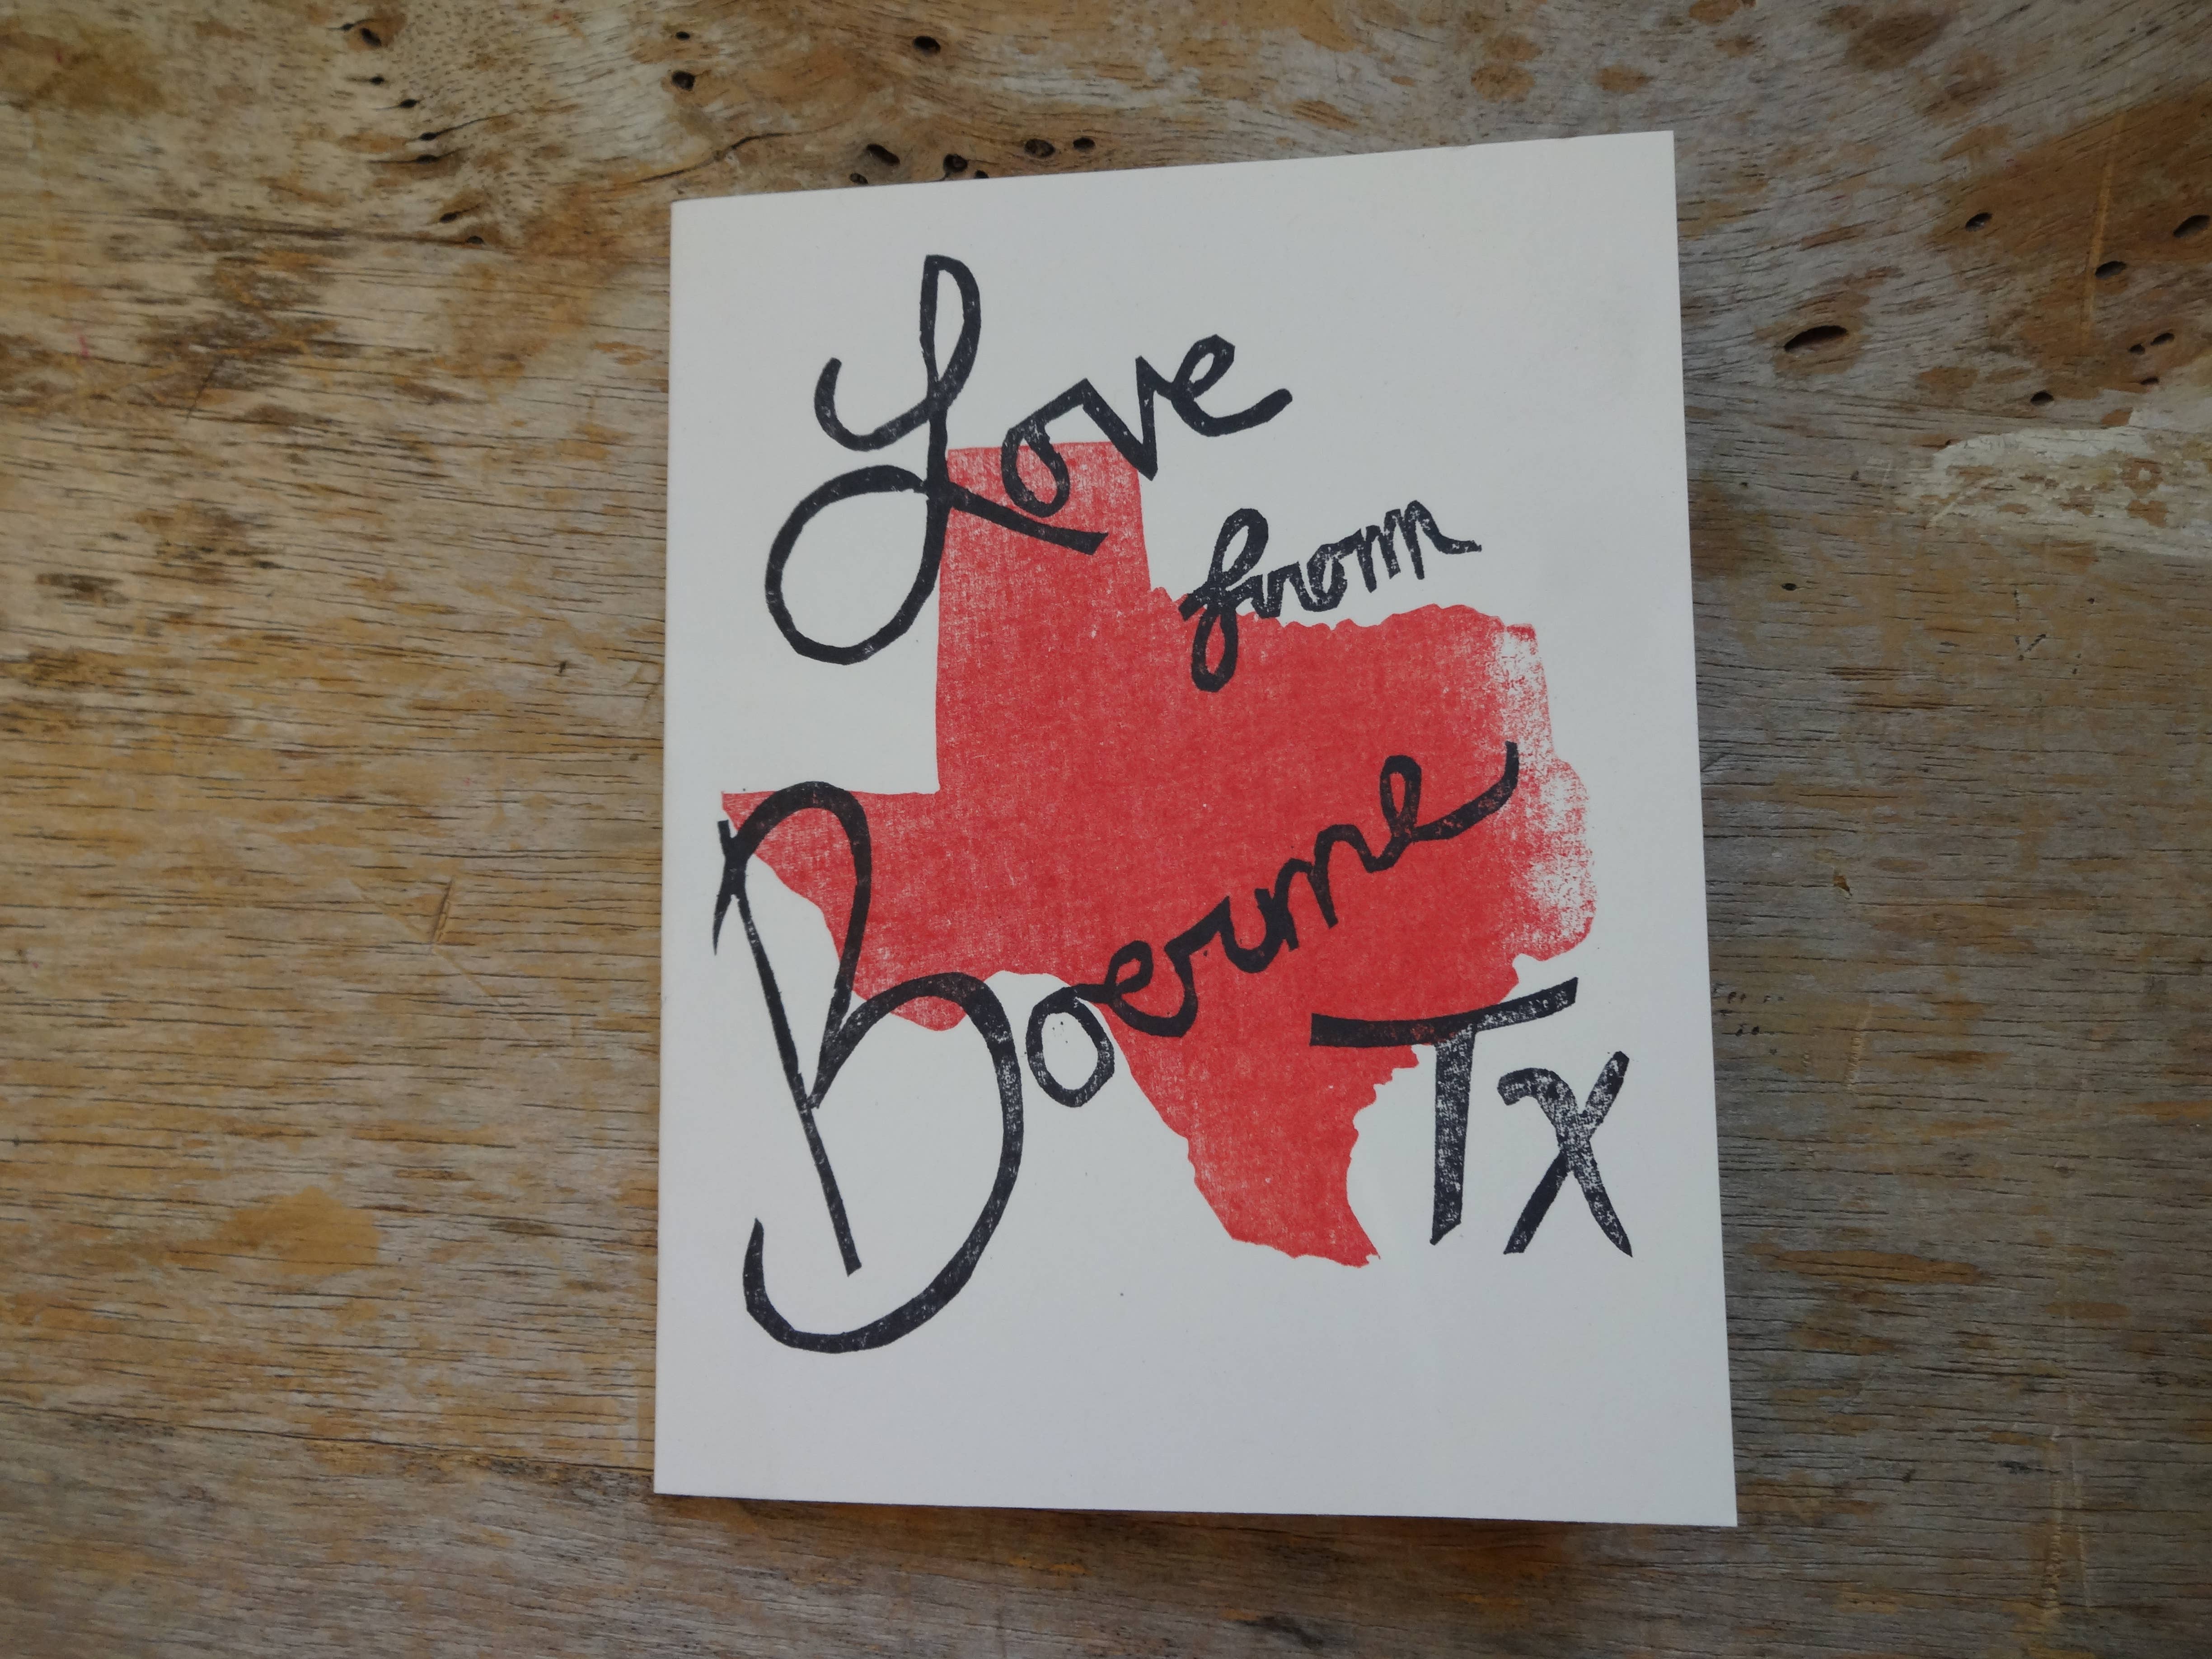 Love
from
Boerne
Tx